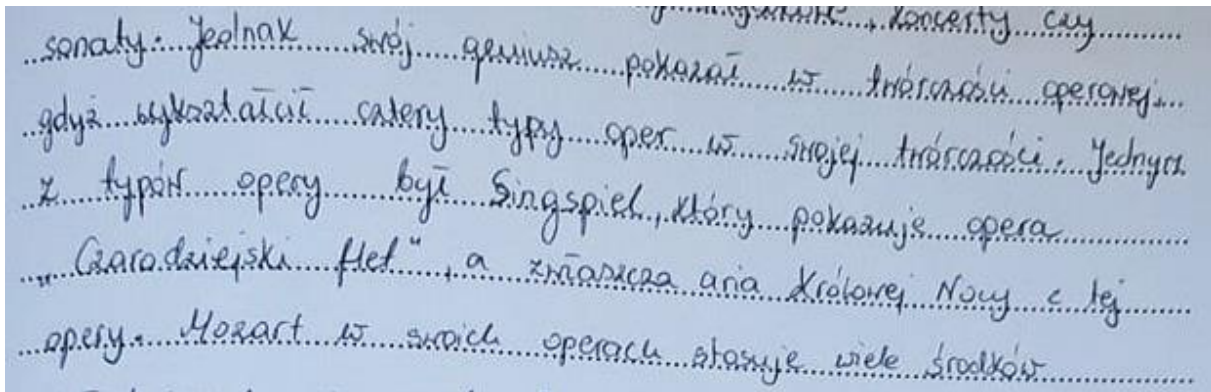 koncerty czy
sonaty. Jednak swój geniusz pokazał w twórczości operowej,
gdyż wykształcił cztery typy oper w swojej twórczości. Jednym
z typów opery był Singspiel, który pokazuje opera
„Czarodziejski flet", a zwłaszcza aria Królowej Nocy z tej
opery. Mozart w swoich operach stosuje wiele środków